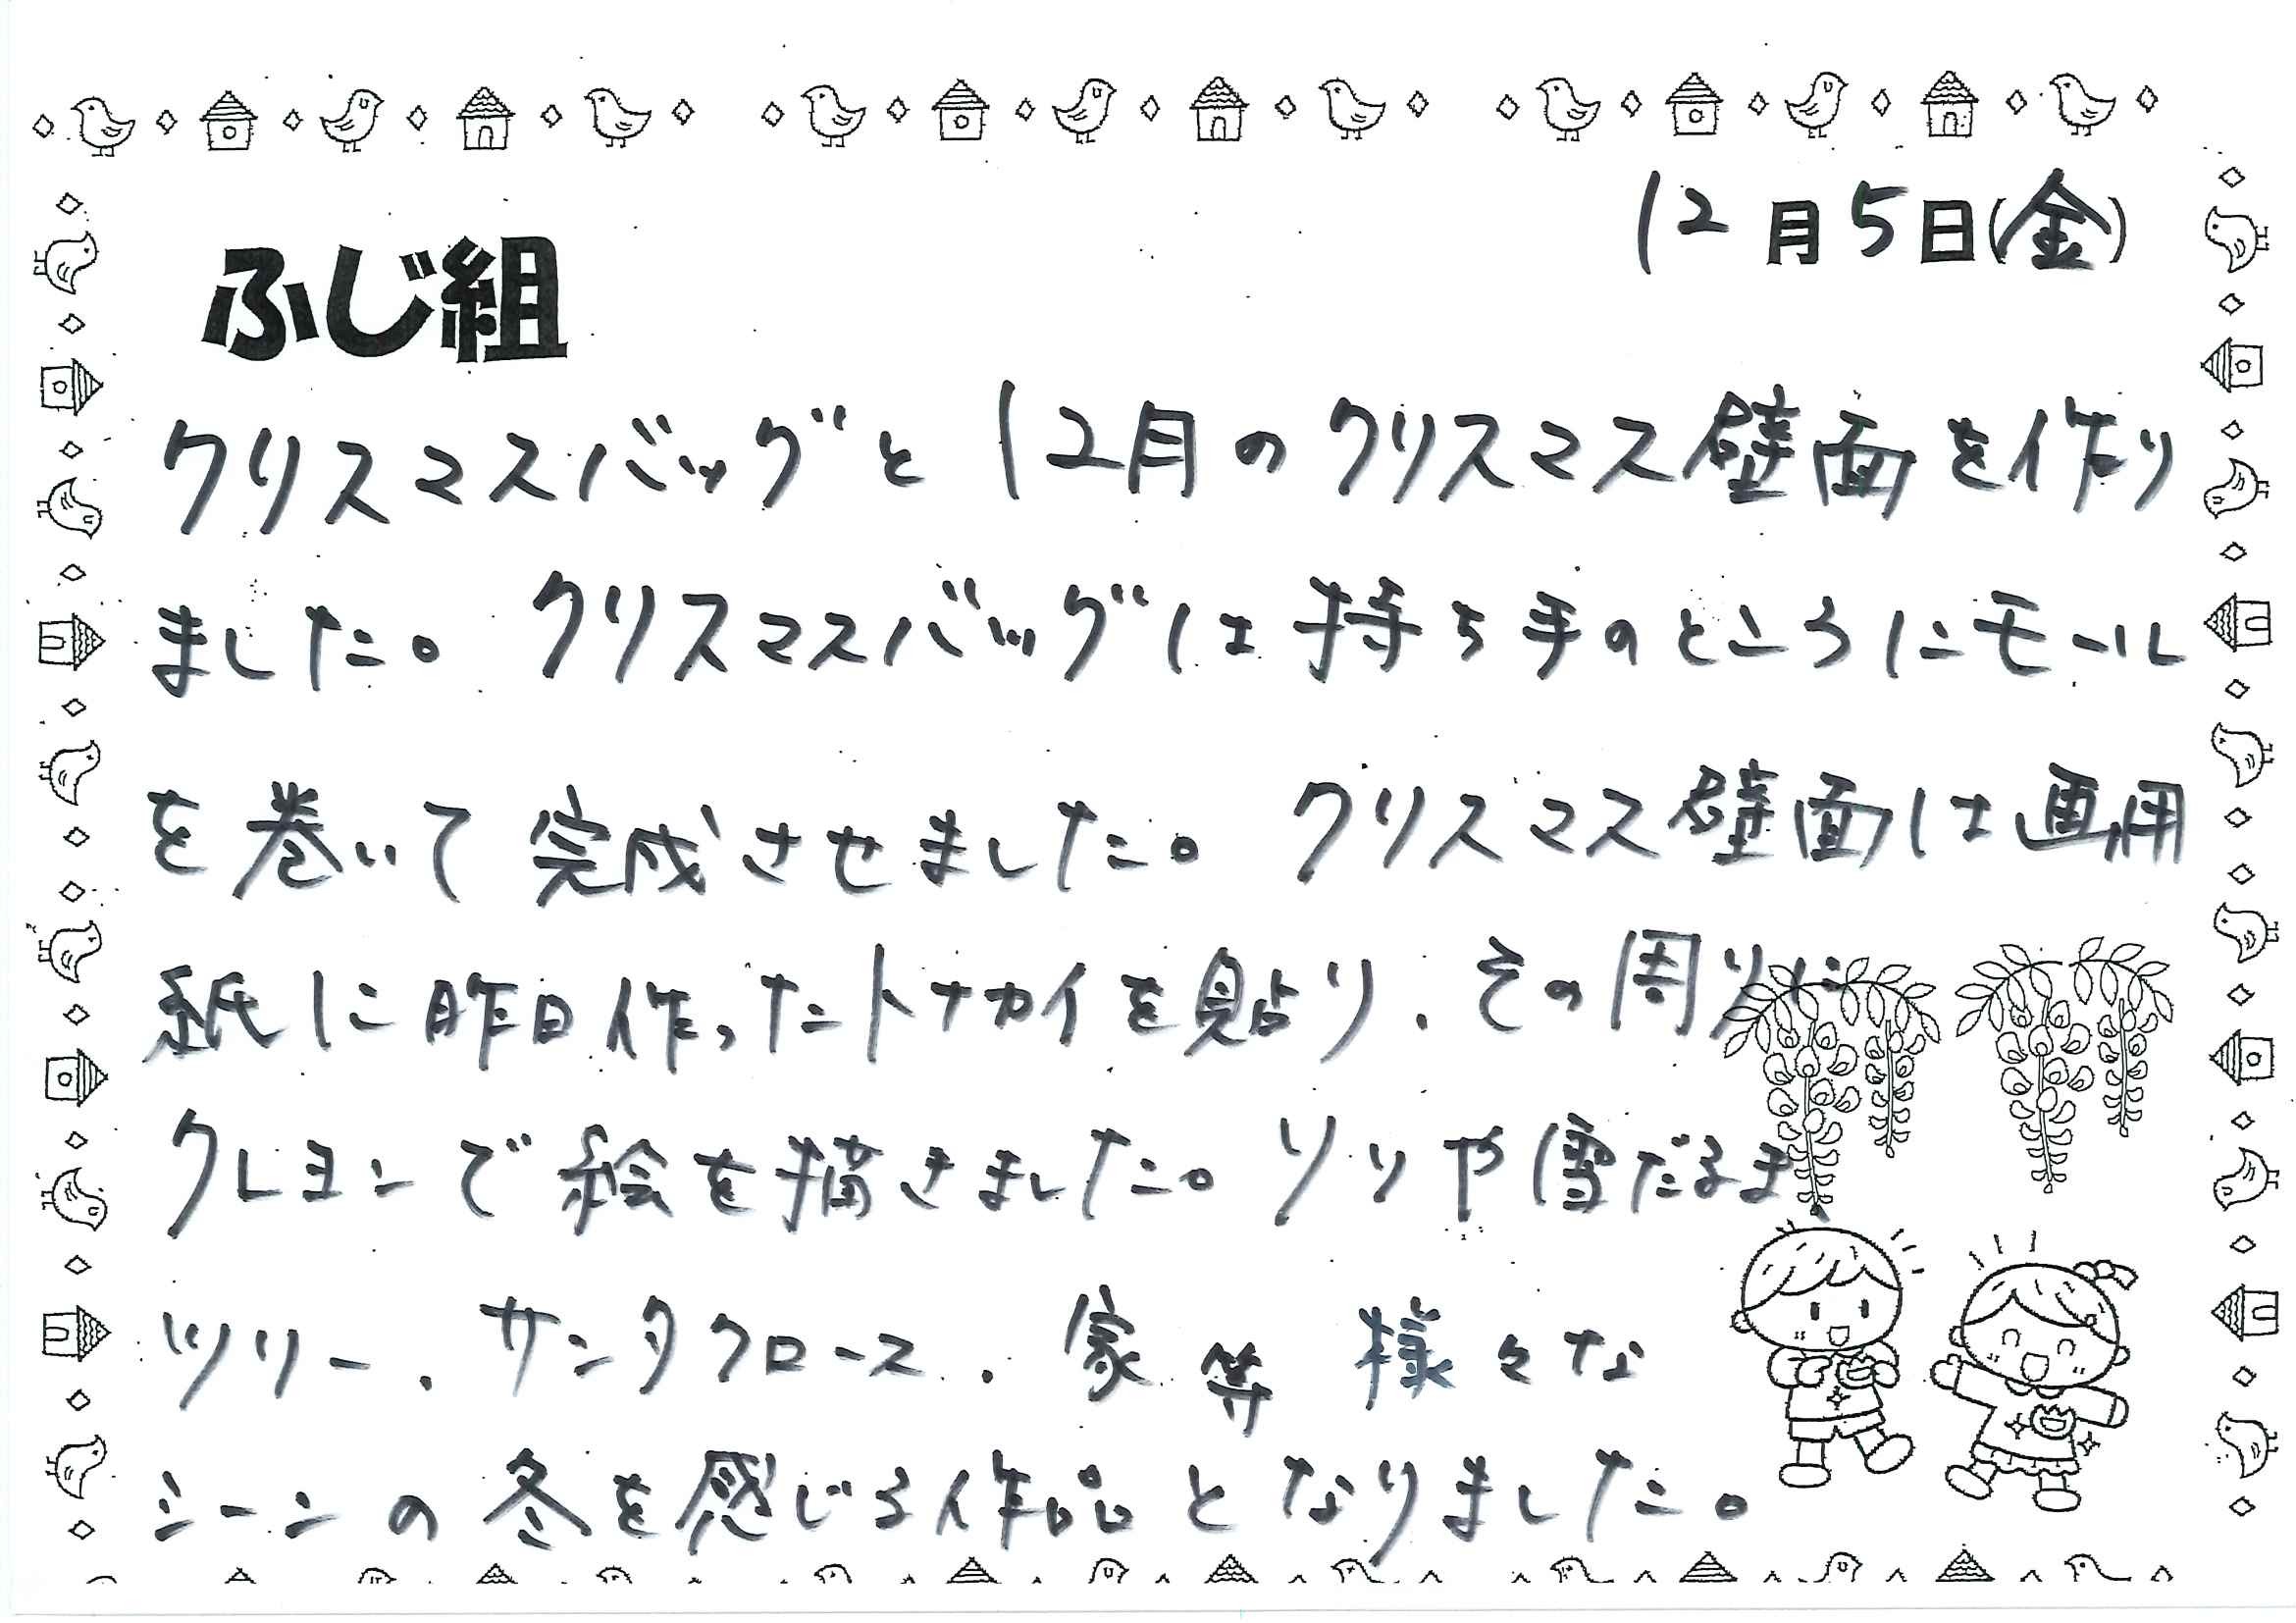 12月5日(金)
ふじ組
クリスマスバッグと12月のクリスマス壁面を作り
ました。クリスマスバッグは持ち手のところにモール
を巻いて完成させました。クリスマス壁面は画用
紙に昨日作ったトナカイを貼り、その周りに
クレヨンで絵を描きました。ソリや雪だるま、
ツリー、サンタクロース、家等様々な
シーンの冬を感じる作品となりました。